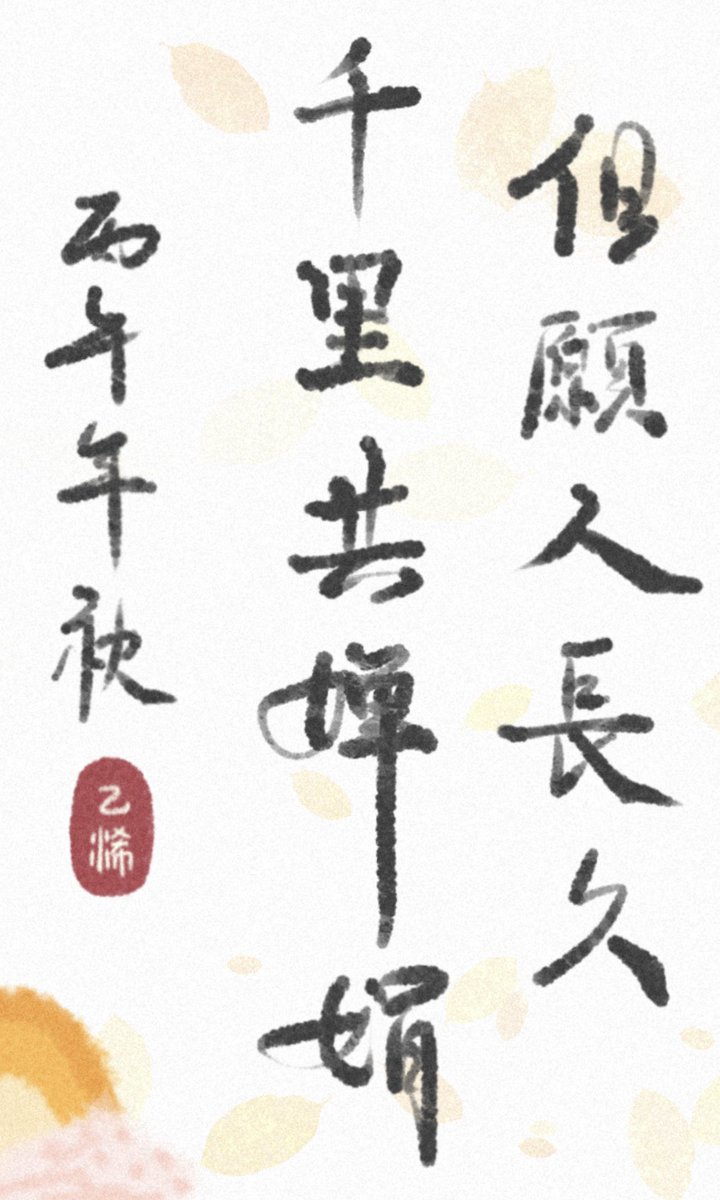 但願人長久
千里共嬋娟
丙午年秋
乙烯